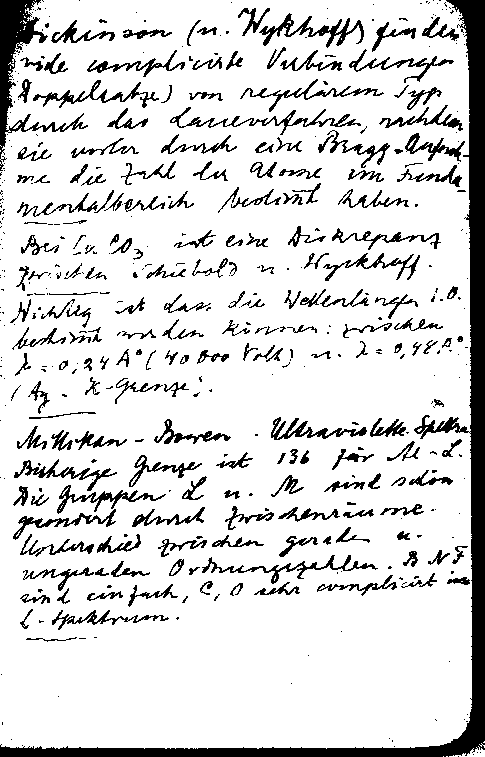 Dickinson (u. Wykhoff) finden
viele complicirte Verbindungen
(Doppelsalze) von regulärem Typ
durch das Laueverfahren, nachdem
sie vorher durch eine Bragg-Aufnah-
me die Zahl der Atome im Funda-
mentalbereich bestimt haben.
Bei CaCO3 ist eine Diskrepanz
zwischen Schiebold u. Wyckhoff.
Wichtig ist dass die Wellenlängen i.O.
bestimt werden können: zwischen
λ = 0,24 A° (40 000 Volt) u. λ = 0,48 A°
(Ag - K-Grenze).
Millikan - Bowen. Ultraviolette Spektra
Bisherige Grenze ist 136 für Al-L.
Die Gruppen L u. M sind schön
gesondert durch Zwischenräume.
Unterschied zwischen geraden u.
ungeraden Ordnungszahlen. B N F
sind einfach, C, O sehr complicirt im
L-Spektrum.